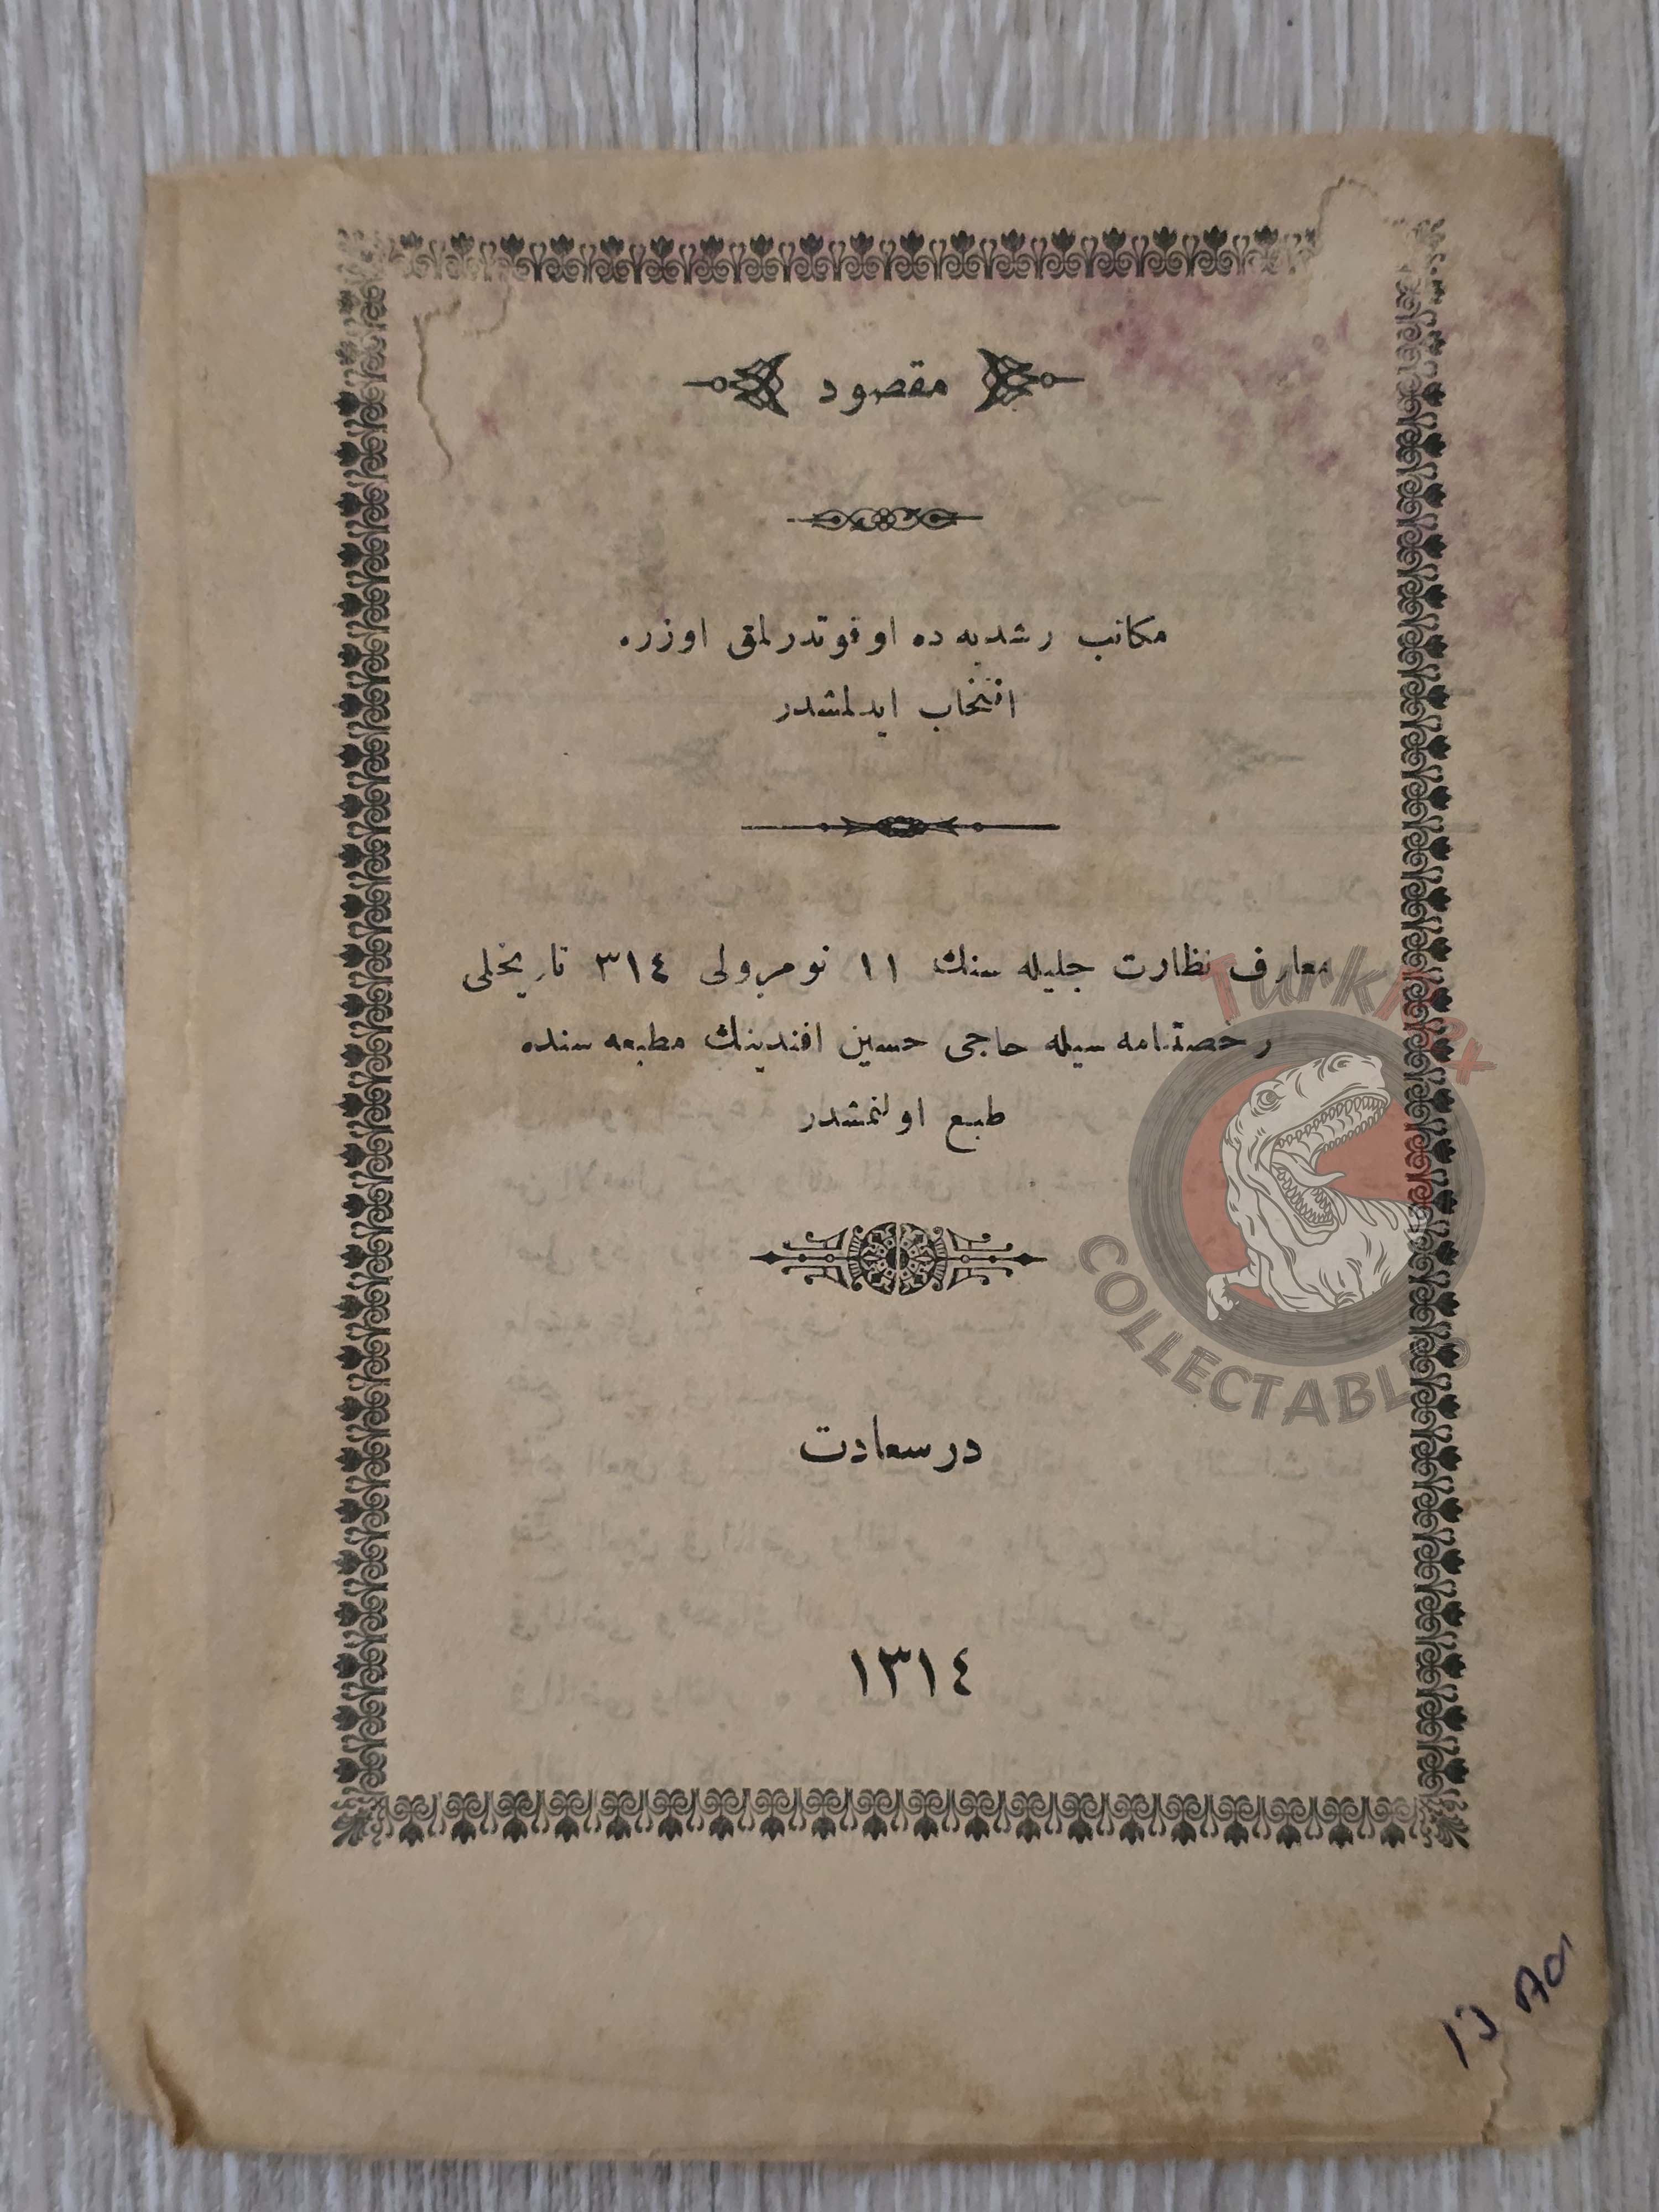 مقصود
مكاتب رشديه ده اوقوتدرلمق اوزره
انتخاب ايدلمشدر
معارف نظارت جليله سنك ١١ نومرولى ٣١٤ تاريخلى
رخصتنامه سيله حاجى حسين افندينك مطبعه سنده
طبع اولنمشدر
درسعادت
١٣١٤
TurkRex
COLLECTABLES